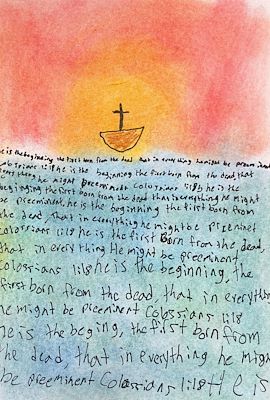 he is the beginning, the first born from the dead, that in everything he might be preeminent
Colossians 1:18 he is the beginning the first born from the dead, that
in everything he might be preeminent Colossians 1:18 he is the
beginning the first born from the dead that in everything he might
be preeminent, he is the beginning the first born from
the dead, that in everything he might be preeminet
Colossians 1:18 he is the first Born from the dead,
that in everything He might be preeminent
Colossians 1:18 he is the beginning, the
first born from the dead, that in everything
he might be preeminent Colossians 1:18
he is the begining, the first born from
the dead, that in everything he might
be preeminent Colossians 1:18 He is